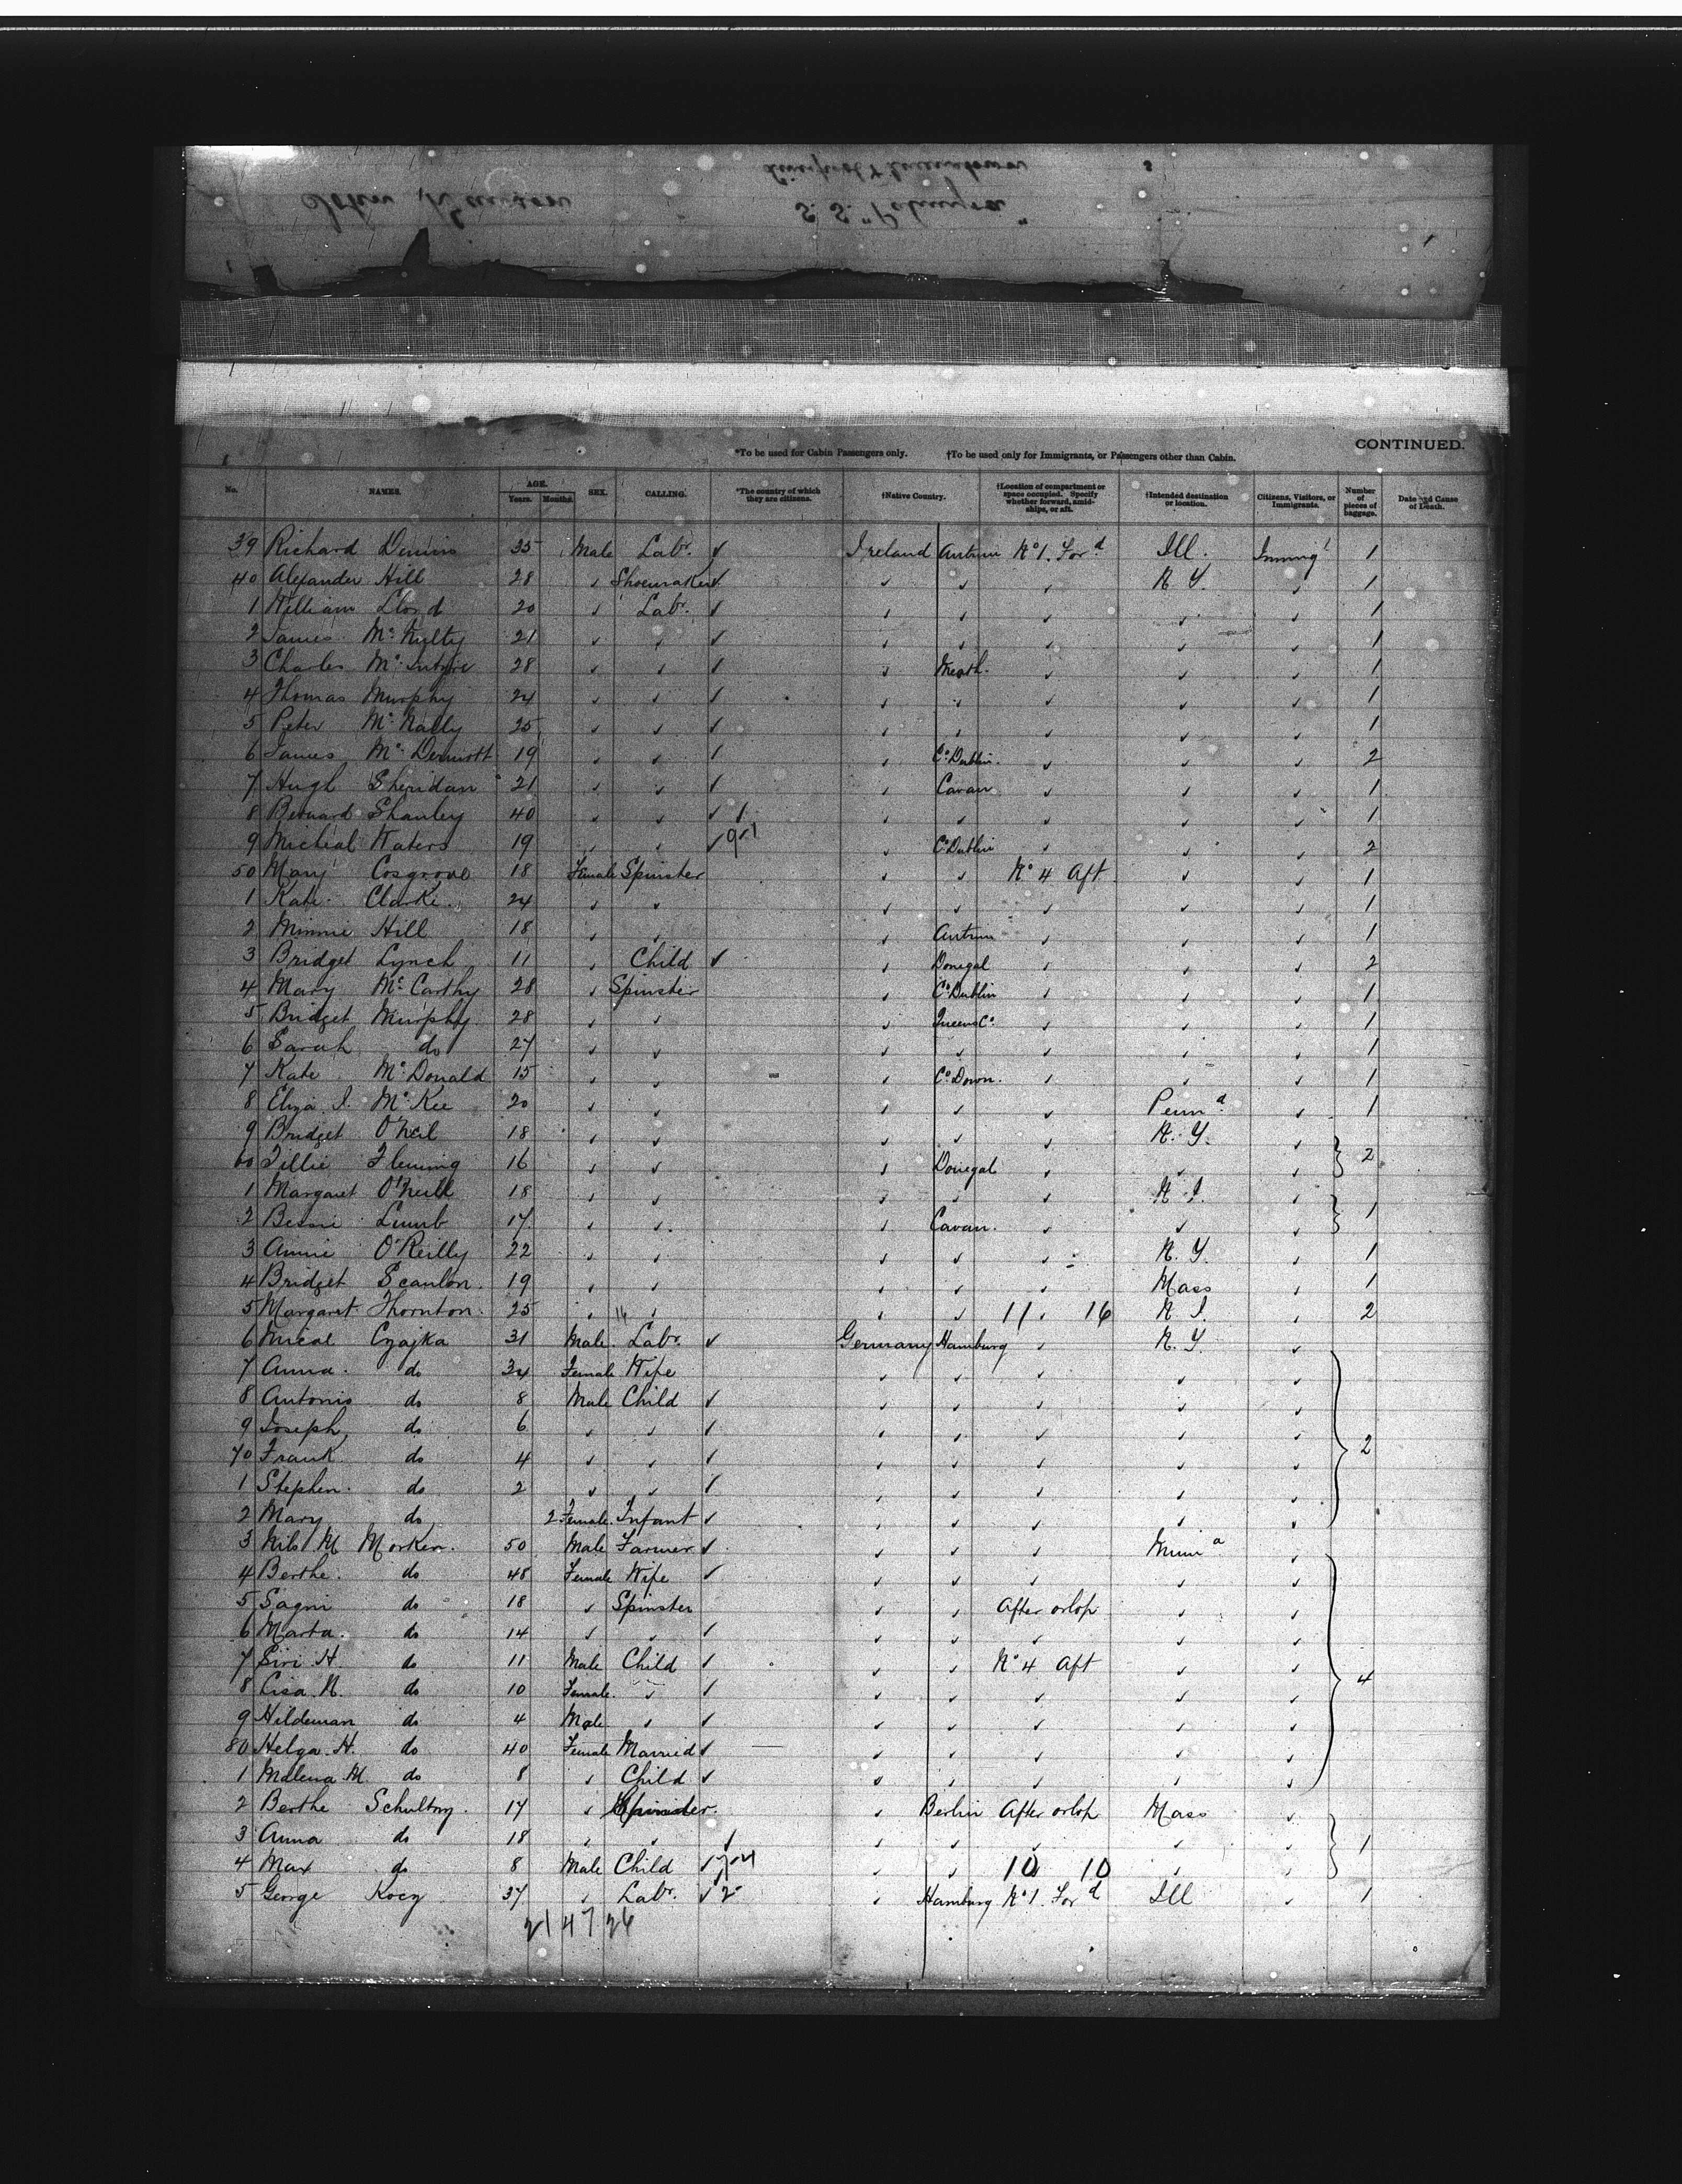 Liverpool & Queenstown
S. S. "Palmyra"
John
CONTINUED.
*To be used for Cabin Passengers only. †To be used only for Immigrants, or Passengers other than Cabin.
No. NAMES. AGE. Years. Months. SEX. CALLING. *The country of which they are citizens. †Native Country. †Location of compartment or space occupied. Specify whether forward, amidships, or aft. †Intended destination or location. Citizens, Visitors, or Immigrants. Number of pieces of baggage. Date and Cause of Death.
39 Richard Dennis 35 Male Labr. ✓ Ireland Antrim No 1. Ford Ill. Immigt 1
40 Alexander Hill 28 " Shoemaker ✓ " " " N. Y. " 1
1 William Lloyd 20 " Labr. ✓ " " " " " 1
2 James McNulty 21 " " ✓ " " " " " 1
3 Charles McIntyre 28 " " ✓ " Meath. " " " 1
4 Thomas Murphy 24 " " ✓ " " " " " 1
5 Peter McNally 25 " " ✓ " " " " " 1
6 James McDermott 19 " " ✓ " Co Dublin. " " " 2
7 Hugh Sheridan 21 " " ✓ " Cavan " " " 1
8 Bernard Shanley 40 " " ✓ " " " " " 1
9 Micheal Waters 19 " " ✓ " Co Dublin " " " 2
50 Mary Cosgrove 18 Female Spinster " " No 4 Aft " " 1
1 Kate Clarke 24 " " " " " " " 1
2 Minnie Hill 18 " " " Antrim " " " 1
3 Bridget Lynch 11 " Child ✓ " Donegal " " " 2
4 Mary McCarthy 28 " Spinster " Co Dublin " " " 1
5 Bridget Murphy 28 " " " Queens Co " " " 1
6 Sarah do 27 " " " " " " " 1
7 Kate McDonald 15 " " " Co Down. " " " 1
8 Eliza J. McKee 20 " " " " " Penna " 1
9 Bridget O'Neil 18 " " " " " N. Y. "
60 Tillie Fleming 16 " " " Donegal " " " 2
1 Margaret O'Neill 18 " " " " " R. I. "
2 Bessie Lumb 17 " " " Cavan. " " " 1
3 Annie O'Reilly 22 " " " " " N. Y. " 1
4 Bridget Scanlon 19 " " " " " Mass " 1
5 Margaret Thornton 25 " 16 " " " 11 " 16 R. I. " 2
6 Mical Czajka 31 Male. Labr. ✓ Germany Hamburg " N. Y. "
7 Anna do 34 Female Wife " " " " "
8 Antonio do 8 Male Child ✓ " " " " "
9 Joseph do 6 " " ✓ " " " " " 2
70 Frank do 4 " " ✓ " " " " "
1 Stephen do 2 " " ✓ " " " " "
2 Mary do 2 Female. Infant ✓ " " " " "
3 Nils M Morken. 50 Male Farmer ✓ " " " Minna "
4 Berthe do 48 Female Wife ✓ " " " " "
5 Sagni do 18 " Spinster " " After orlop " "
6 Marta. do 14 " " ✓ " " " " "
7 Siri H. do 11 Male Child ✓ " " No 4 Aft " "
8 Lisa N. do 10 Female. " ✓ " " " " " 4
9 Hildeman do 4 Male " ✓ " " " " "
80 Helga H. do 40 Female Married ✓ " " " " "
1 Malena M. do 8 " Child ✓ " " " " "
2 Berthe 17 " Spinster. " Berlin After orlop Mass "
3 Anna do 18 " " ✓ " " " " " 1
4 Max do 8 Male Child ✓ " " 10 10 " "
5 George Koczy 37 " Labr. ✓ 2 " Hamburg No 1. Ford Ill " 1
21 47 26